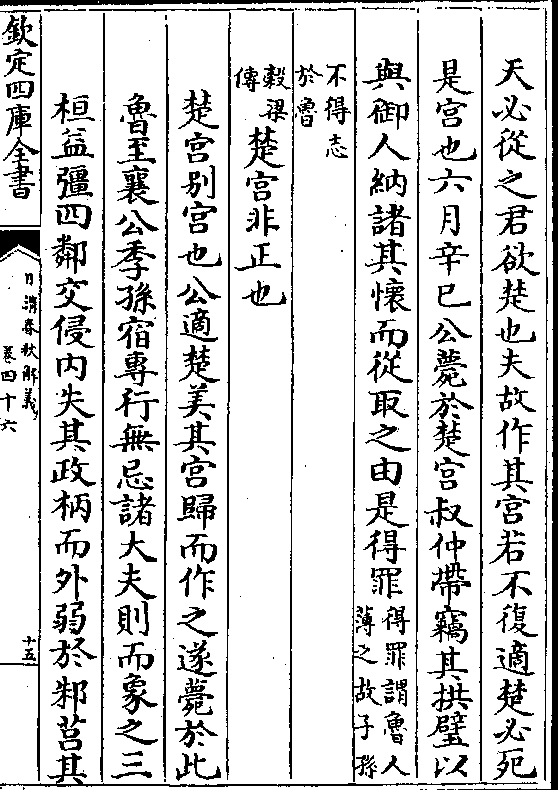 天必從之君欲楚也夫故作其宮若不復適楚必死
是宮也六月辛巳公薨於楚宮叔仲帶竊其拱璧以
與御人納諸其懷而從取之由是得罪得罪謂魯人
薄之故子孫
不得志
於魯
穀梁
傳楚宮非正也
楚宮别宮也公適楚美其宮歸而作之遂薨於此
魯至襄公季孫宿專行無忌諸大夫則而象之三
桓益彊四鄰交侵内失其政柄而外弱於邾莒其
欽定四庫全書
日講春秋解義
卷四十六
十五